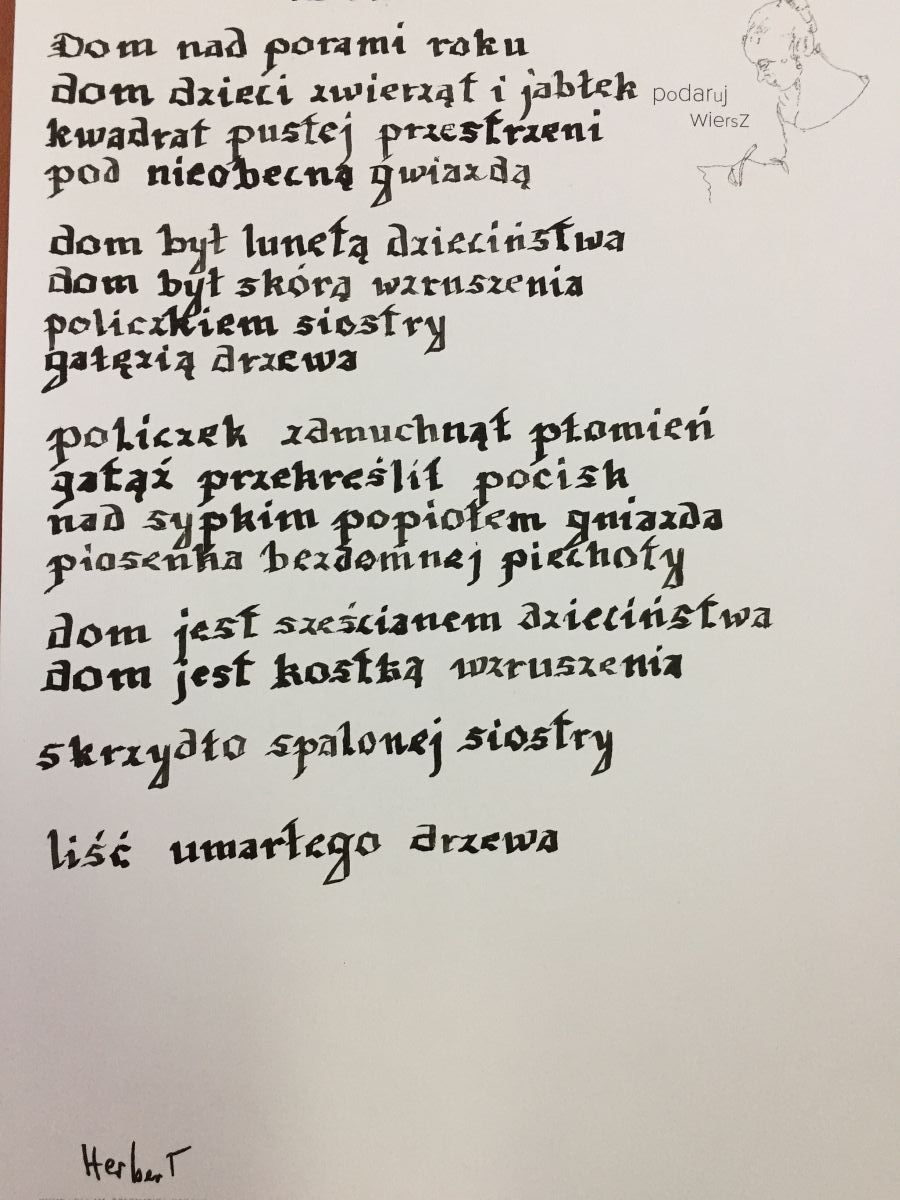 Dom nad porami roku
dom dzieci zwierząt i jabłek
podaruj
WiersZ
kwadrat pustej przestrzeni
pod nieobecną gwiazdą
dom był lunetą dzieciństwa
dom był skórą wzruszenia
policzkiem siostry
gałęzią drzewa
policzek zdmuchnął płomień
gałąź przekreślił pocisk
nad sypkim popiołem gniazda
piosenka bezdomnej piechoty
dom jest sześcianem dzieciństwa
dom jest kostką wzruszenia
skrzydło spalonej siostry
liść umarłego drzewa
HerberT